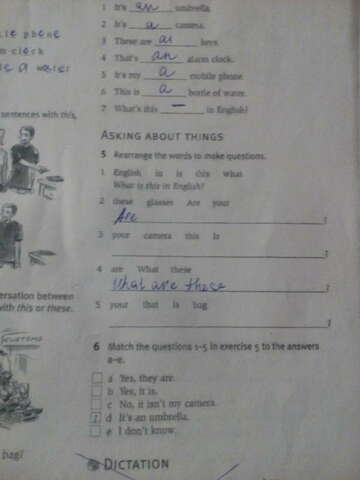 1 It's an umbrella.
2 It's a camera.
3 These are keys.
4 That's an alarm clock.
5 It's my a mobile phone
6 This is a bottle of water.
7 What's this — in English?
ile phone
m clock
is a
sentences with this,
ASKING ABOUT THINGS
5 Rearrange the words to make questions.
1 English in is this what
What is this in English?
2 these glasses Are your
Are ?
3 your camera this Is
?
4 are What these
What are these ?
5 your that is bag
?
versation between
with this or these.
6 Match the questions 1–5 in exercise 5 to the answers
a–e.
a Yes, they are.
b Yes, it is.
c No, it isn't my camera.
1 d It's an umbrella.
e I don't know.
bag!
DICTATION